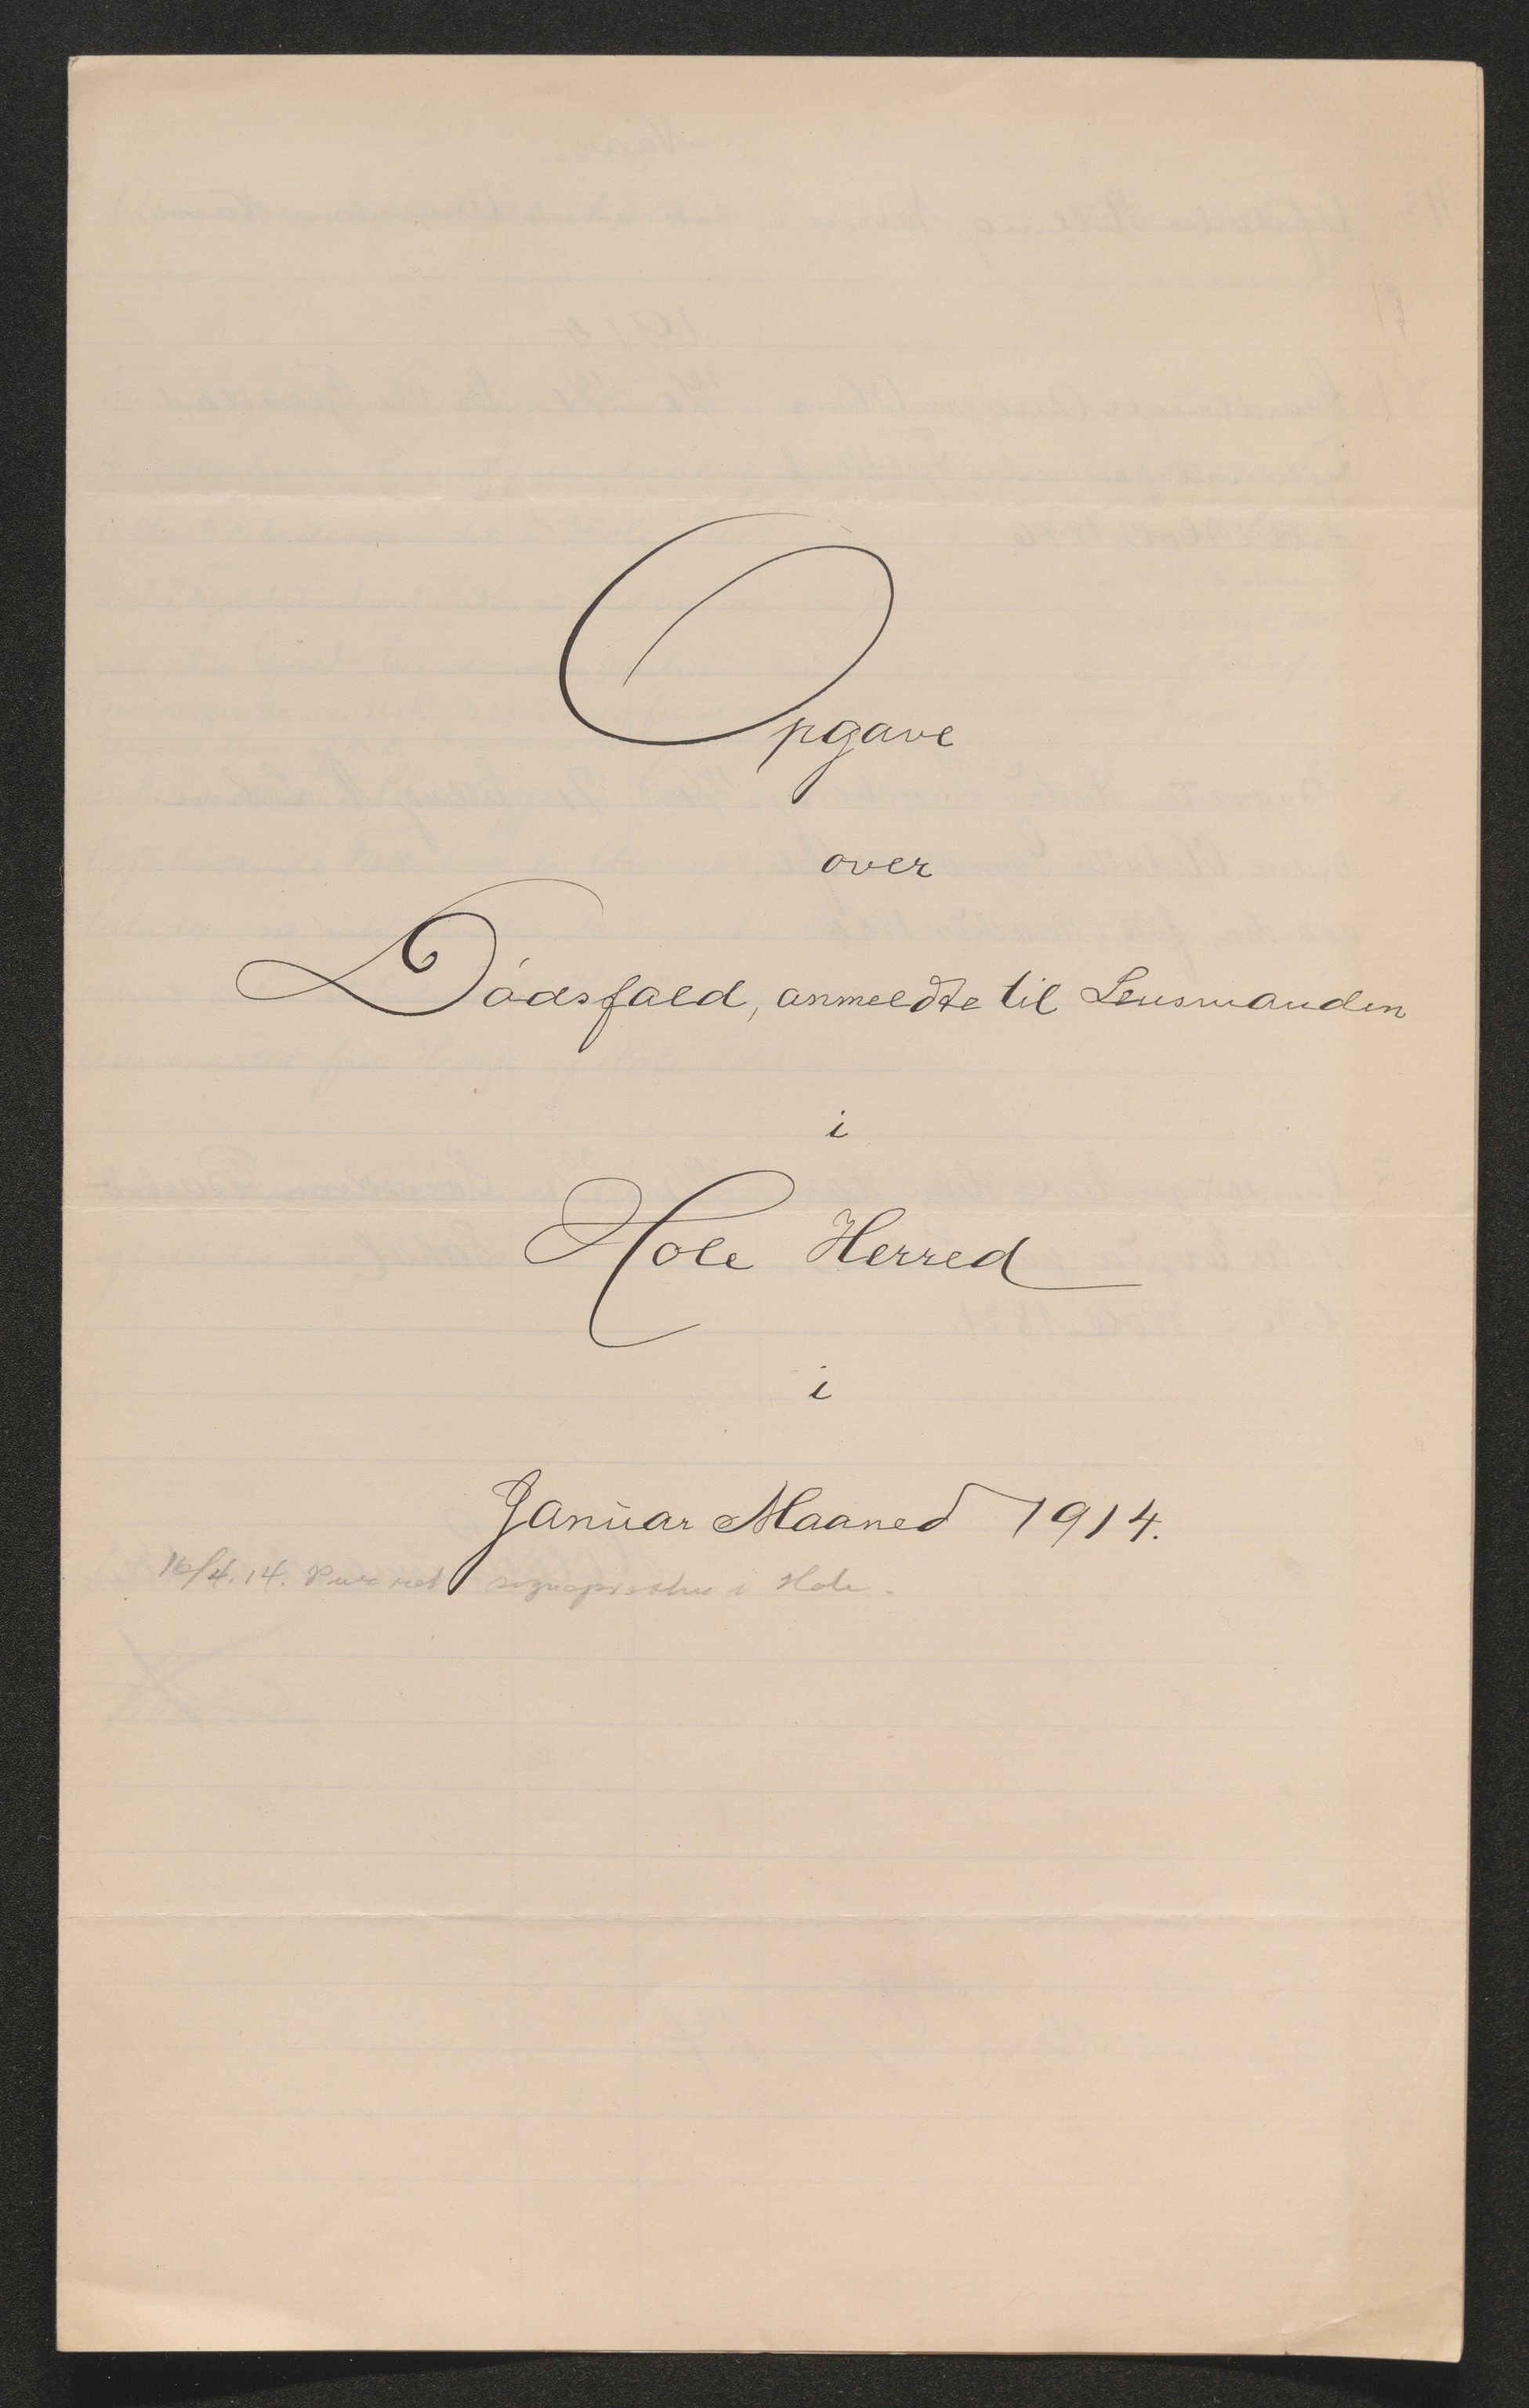 Opgave
over
Dødsfald, anmeldte til Lensmanden
i
Hole Herred
i
Januar Maaned 1914.
16/4.14. Purret sogneprsten i Hole.